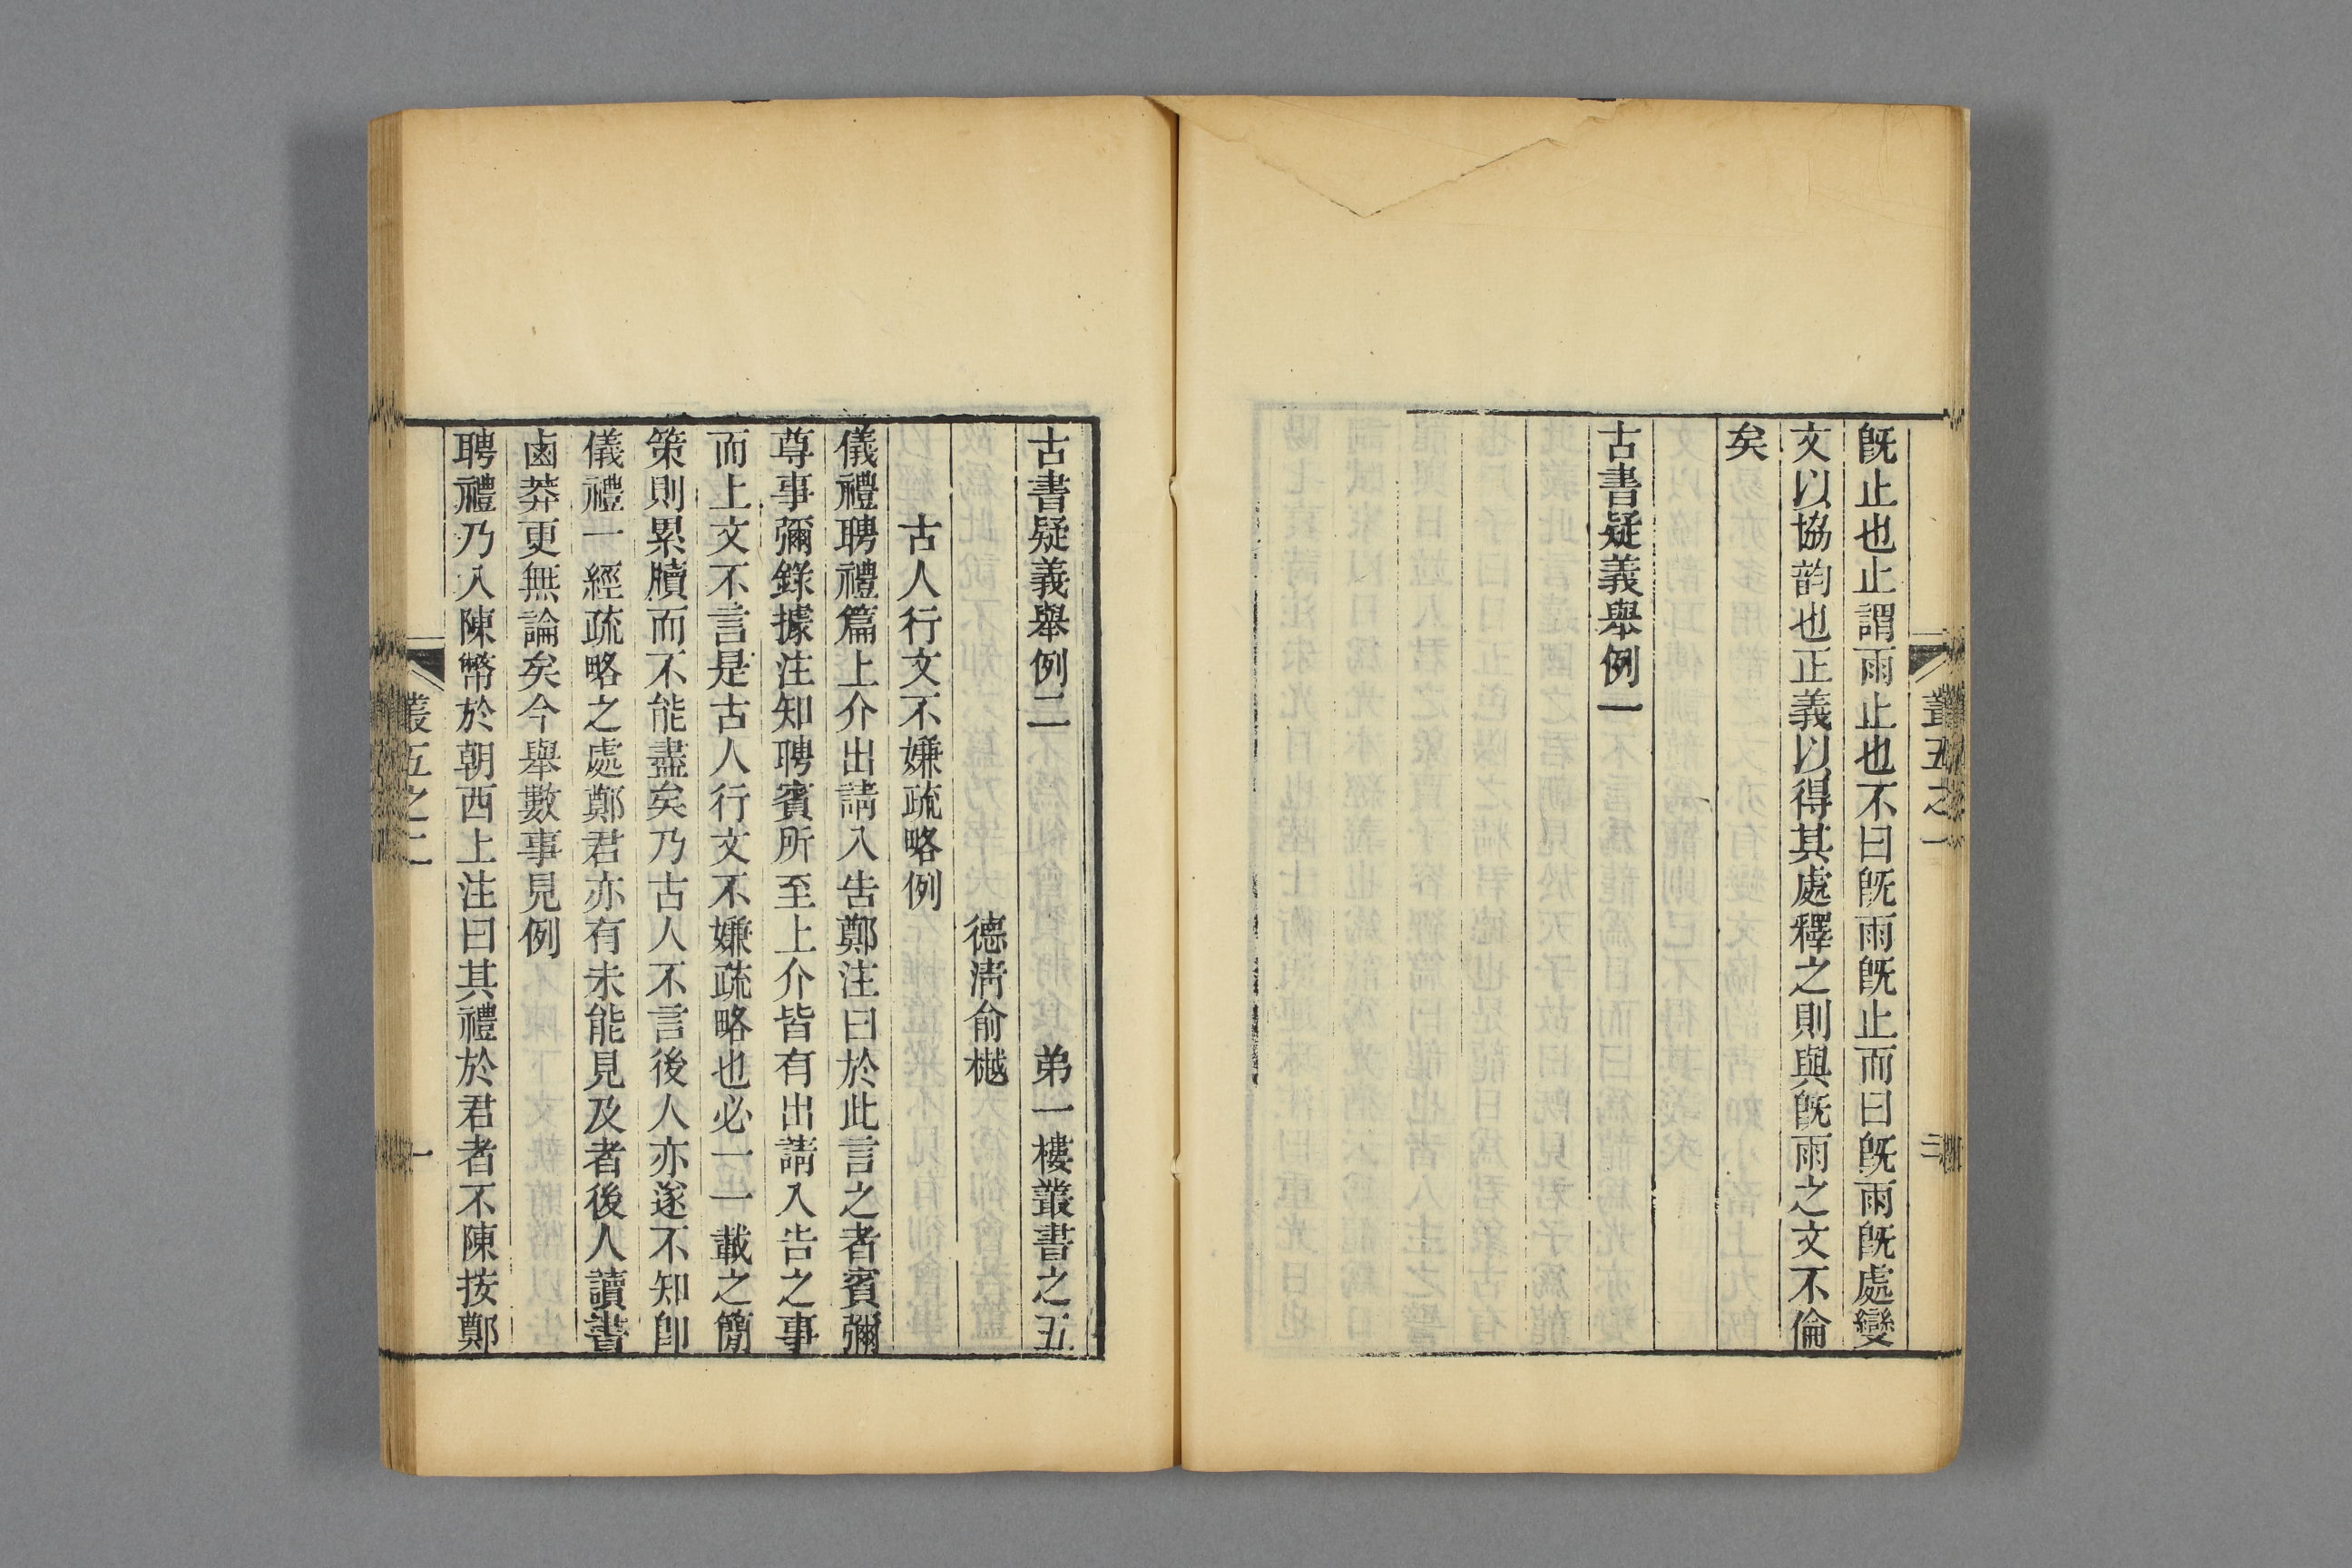 叢五之一
旣止也止謂雨止也不曰旣雨旣止而曰旣雨旣處變
文以協韵也正義以得其處釋之則與旣雨之文不倫
矣
古書疑義舉例一
古書疑義舉例二　弟一樓叢書之五
德淸俞樾
古人行文不嫌疏略例
儀禮聘禮篇上介出請入告鄭注曰於此言之者賓彌
尊事彌錄據注知聘賓所至上介皆有出請入告之事
而上文不言是古人行文不嫌疏略也必一一載之簡
策則累牘而不能盡矣乃古人不言後人亦遂不知卽
儀禮一經疏略之處鄭君亦有未能見及者後人讀書
鹵莽更無論矣今舉數事見例
聘禮乃入陳幣於朝西上注曰其禮於君者不陳按鄭
叢五之二
一